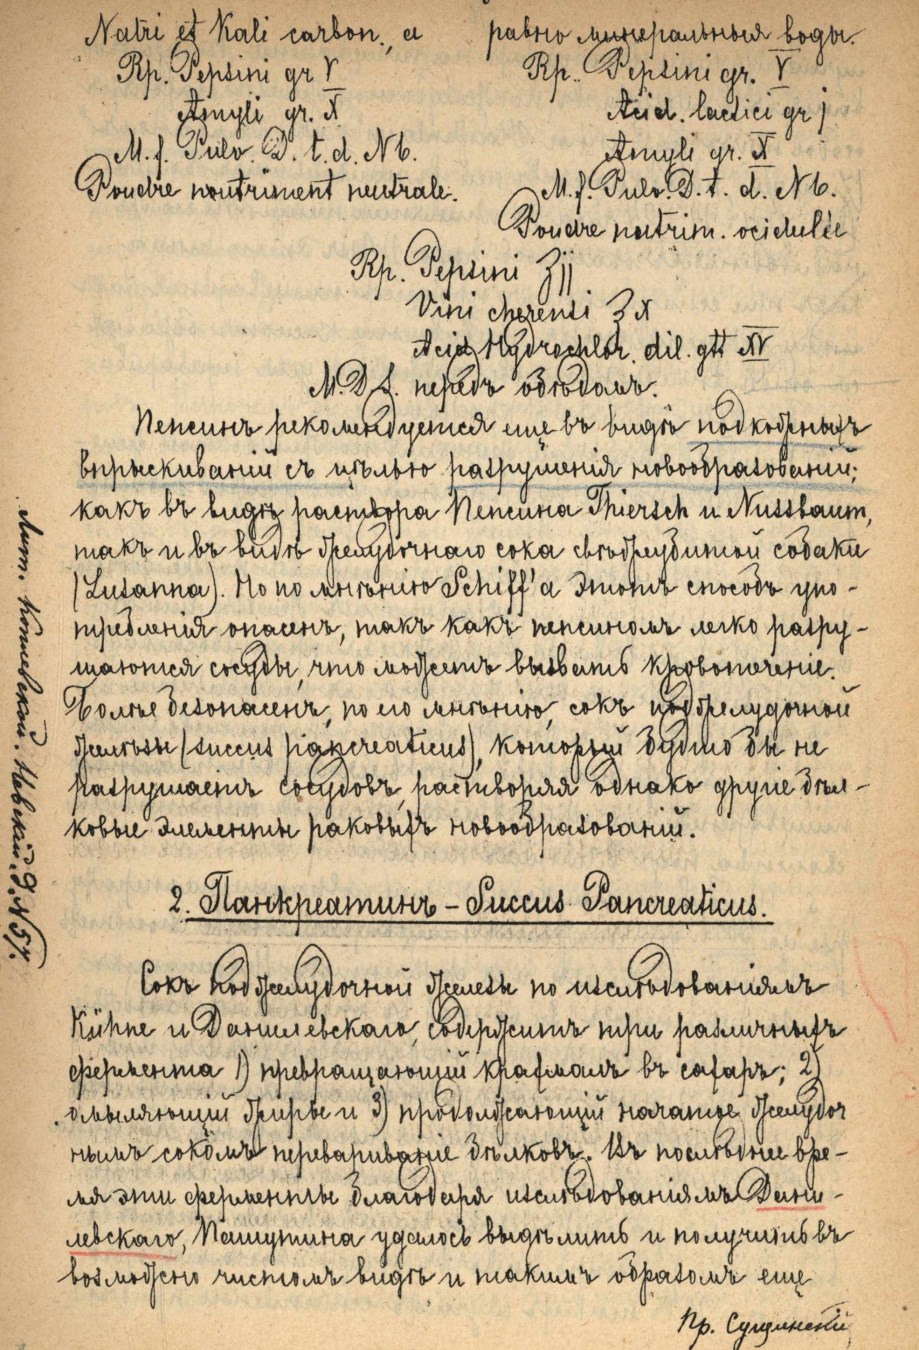 Natri et Kali carbon., а равно минеральныя воды.
Rp. Pepsini gr V
Amyli gr. X
M. f. Pulv. D. t. d. № 6.
Poudre noutriment neutrale.
Rp. Pepsini gr. V
Acid. lactici gr j
Amyli gr. X
M. f. Pulv. D. t. d. № 6.
Poudre nutrim. acidulée
Rp. Pepsini ʒjj
Vini cherensi ʒ x
Acid. Hydrochlor. dil. gtt XV
M. D. S. передъ обѣдомъ.
Пепсинъ рекомендуется еще въ видѣ подкожныхъ
впрыскиваній съ цѣлью разрушенія новообразованій;
какъ въ видѣ раствора Пепсина Thiersch и Nussbaum,
такъ и въ видѣ желудочнаго сока свѣжеубитой собаки
(Lusanna). Но по мнѣнію Schiff'а этотъ способъ упо-
требленія опасенъ, такъ какъ пепсиномъ легко разру-
шаются сосуды, что можетъ вызвать кровотеченіе.
Болѣе безопасенъ, по его мнѣнію, сокъ поджелудочной
желѣзы (succus pancreaticus), который будто бы не
разрушаетъ сосудовъ, растворяя однако другіе бѣл-
ковые элементы раковыхъ новообразованій.
2. Панкреатинъ – Succus Pancreaticus.
Сокъ поджелудочной железы по изслѣдованіямъ
Kühne и Данилевскаго, содержитъ три различныхъ
фермента 1) превращающій крахмалъ въ сахаръ; 2)
омыляющій жиры и 3) продолжающій начатое желудоч
нымъ сокомъ перевариваніе бѣлковъ. Въ послѣднее вре-
мя эти ферменты благодаря изслѣдованіямъ Дани-
левскаго, Пашутина удалось выдѣлить и получить въ
возможно чистомъ видѣ и такимъ образомъ еще
Пр. Сущинскій
Лит. Невскій. Д. № 57.